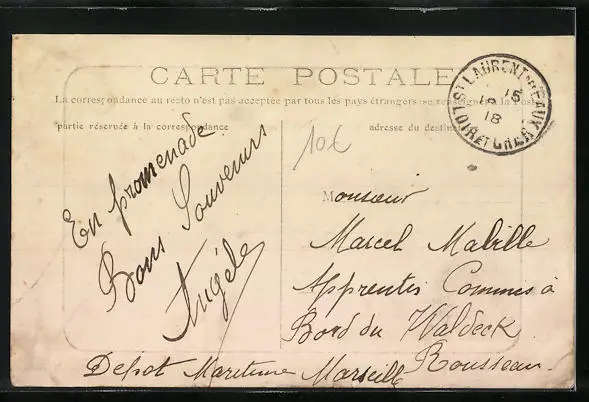 CARTE POSTALE
La correspondance au recto n'est pas acceptée par tous les pays étrangers se renseigner à la Poste
partie réservée à la correspondance
adresse du destinataire
ST LAURENT DES EAUX
15
18
LOIR ET CHER
10€
En promenade
Bons Souvenirs
Angèle
Monsieur
Marcel Mabille
Apprentis Commis à
Bord du Waldeck
Rousseau
Depot Maritime Marseille